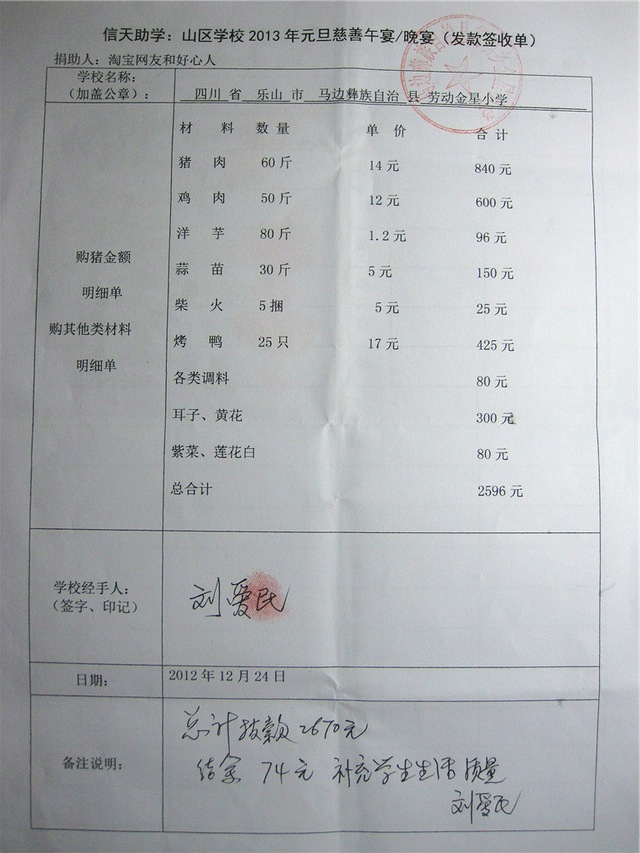 信天助学：山区学校2013年元旦慈善午宴/晚宴（发款签收单）
捐助人：淘宝网友和好心人
学校名称：
（加盖公章）：
四川 省 乐山 市 马边彝族自治 县 劳动金星小学
材 料 数 量 单 价 合 计
猪 肉 60斤 14元 840元
鸡 肉 50斤 12元 600元
洋 芋 80斤 1.2元 96元
蒜 苗 30斤 5元 150元
柴 火 5捆 5元 25元
烤 鸭 25只 17元 425元
各类调料 80元
耳子、黄花 300元
紫菜、莲花白 80元
总合计 2596元
购猪金额
明细单
购其他类材料
明细单
学校经手人：
（签字、印记）
刘爱民
日期：
2012年12月24日
备注说明：
总计拨款2670元
结余 74元 补充学生生活质量
刘爱民